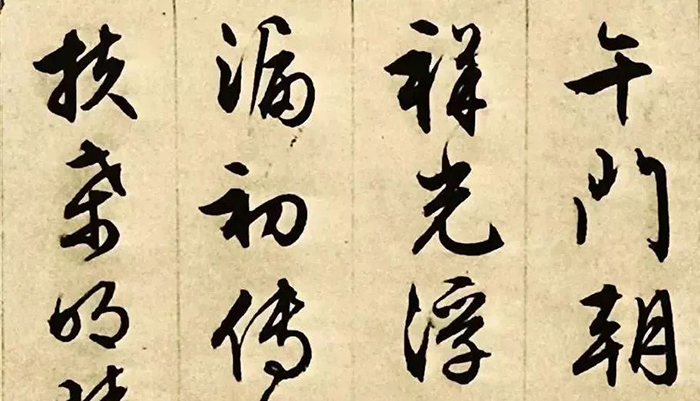 午門朝
祥光浮
漏初傳
扶桒明